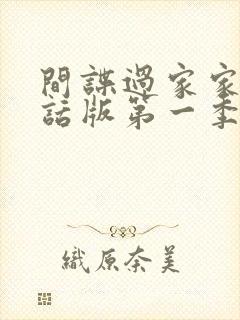 間諜過家家
話版第一季
織原奈美